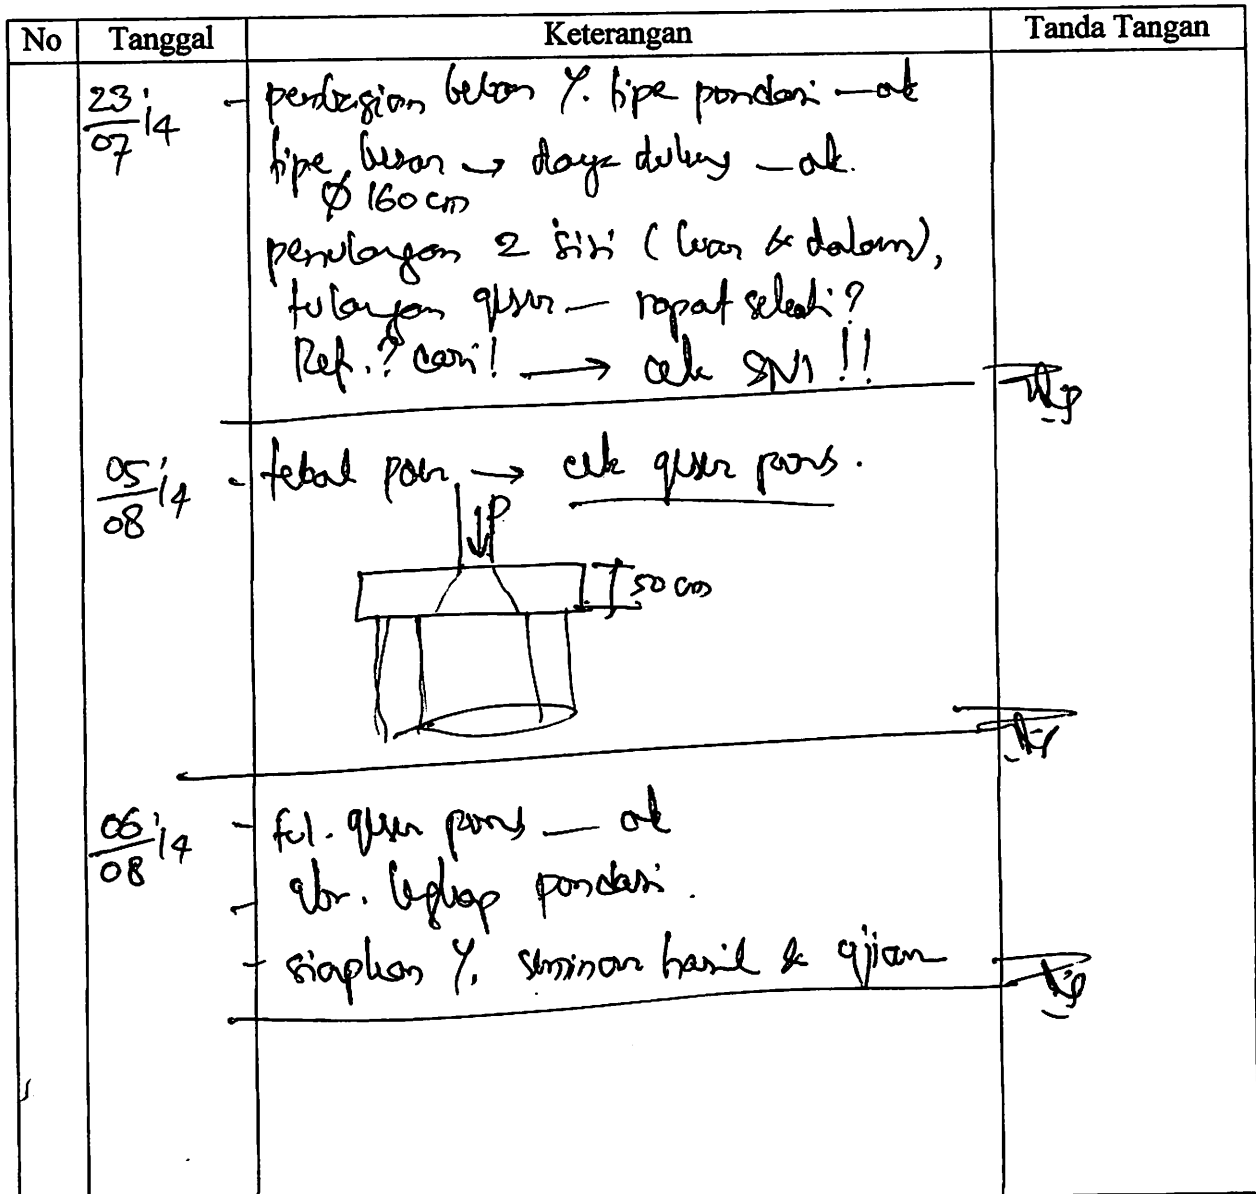 No Tanggal Keterangan Tanda Tangan
23/07 '14 - pembagian beban y. tipe pondasi — ok
tipe besar → daya dukung — ok.
Ø 160 cm
penulangan 2 sisi (luar & dalam),
tulangan geser — rapat sekali?
Ref.? cari! → cek SNI !!
05/08 '14 - tebal poer → cek geser pons.
P
50 cm
06/08 '14 - tul. geser pons — ok
- gbr. lengkap pondasi.
- siapkan y. seminar hasil & ujian